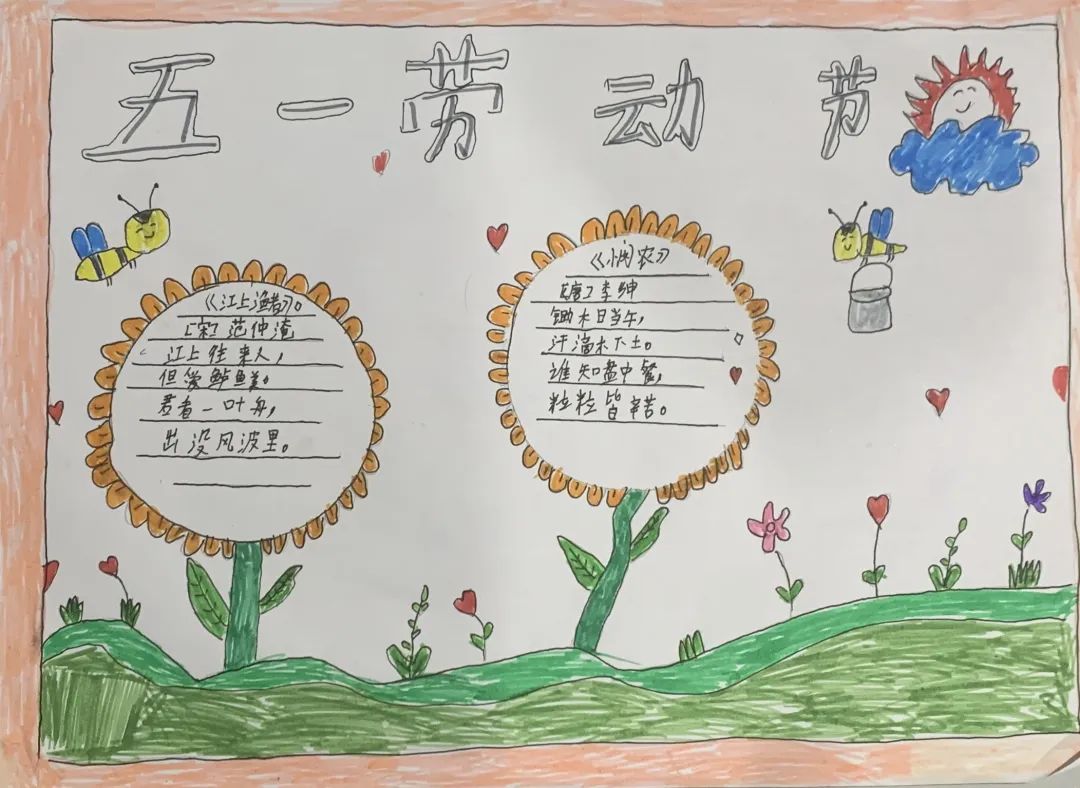 五一劳动节
《江上渔者》。
[宋]范仲淹
江上往来人，
但爱鲈鱼美。
君看一叶舟，
出没风波里。
《悯农》
[唐]李绅
锄禾日当午，
汗滴禾下土。
谁知盘中餐，
粒粒皆辛苦。